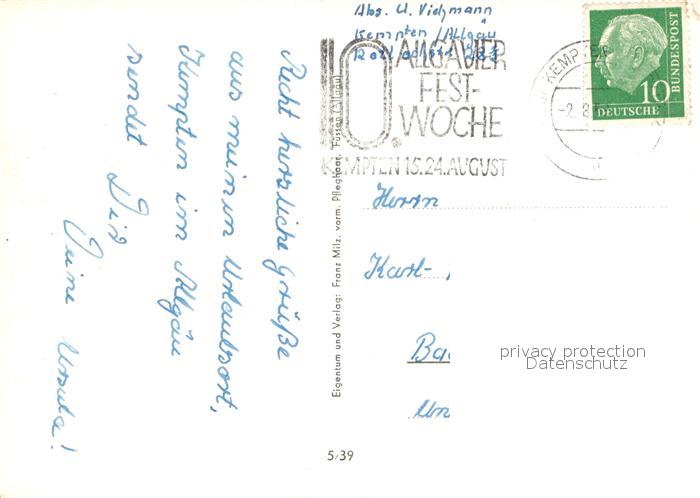 Abs. U. Viehmann
Kempten / Allgäu
10. ALLGÄUER
FEST-
WOCHE
KEMPTEN 15.-24. AUGUST
KEMPTEN
-2.
DEUTSCHE
BUNDESPOST
10
Recht herzliche Grüße
aus meinem Urlaubsort,
Kempten im Allgäu
sendet Dir
Deine Ursula!
Eigentum und Verlag: Franz Milz, vorm. Pfleghaar, Füssen (Allgäu)
Herrn
Karl-
Ba
Un
privacy protection
Datenschutz
5/39